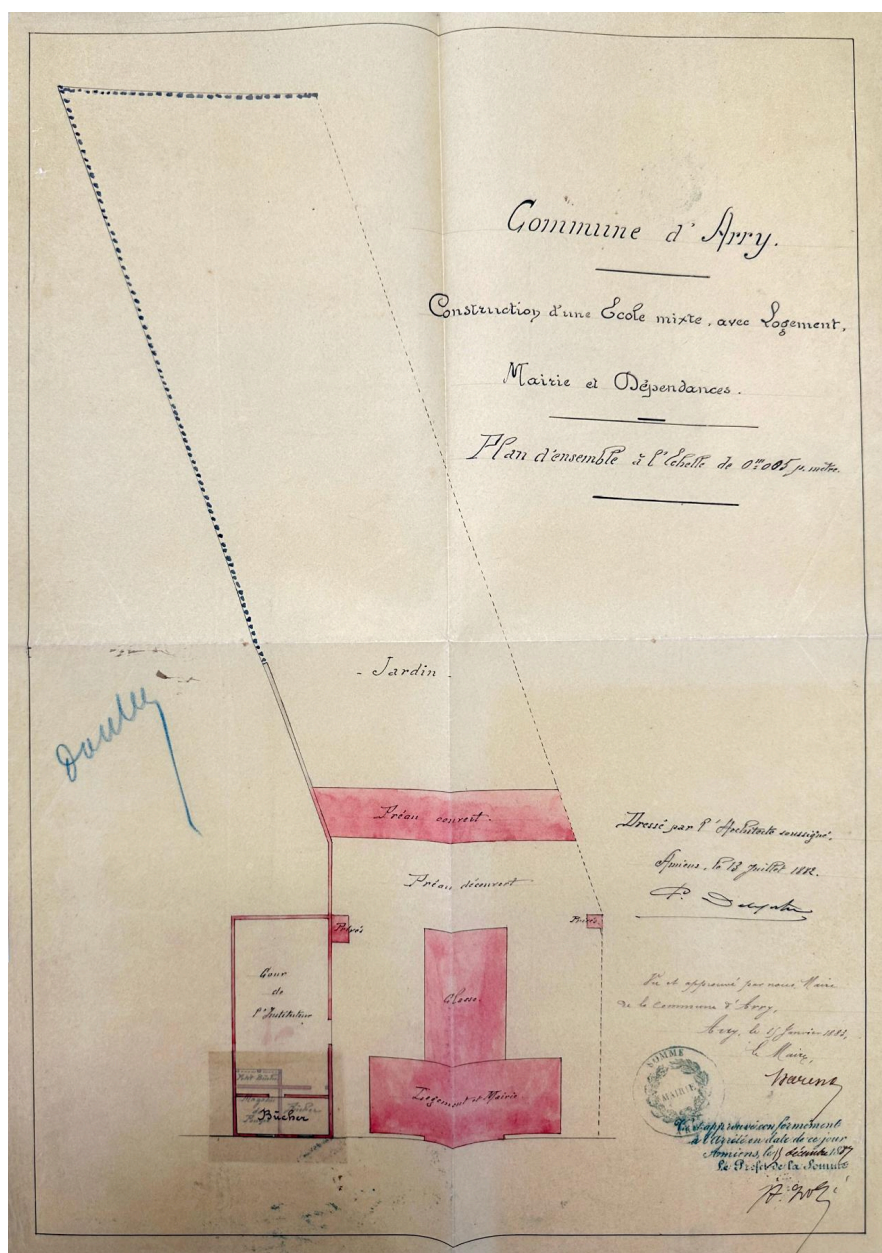 Commune d'Arry.
Construction d'une Ecole mixte, avec Logement,
Mairie et Dépendances.
Plan d'ensemble à l'Echelle de 0m005 p. mètre.
- Jardin -
Préau couvert.
Préau découvert
Privés
Privés
Cour
de
l'Instituteur
Classe.
Logement et Mairie
Bûcher
Dressé par l'Architecte soussigné.
Amiens, le 13 Juillet 1882.
Vu et approuvé par nous Maire
de la commune d'Arry,
Arry, le 15 Janvier
le Maire,
SOMME
MAIRIE
Vu et approuvé conformément
à l'Arrêté en date de ce jour
Amiens, le décembre
Le Préfet de la Somme